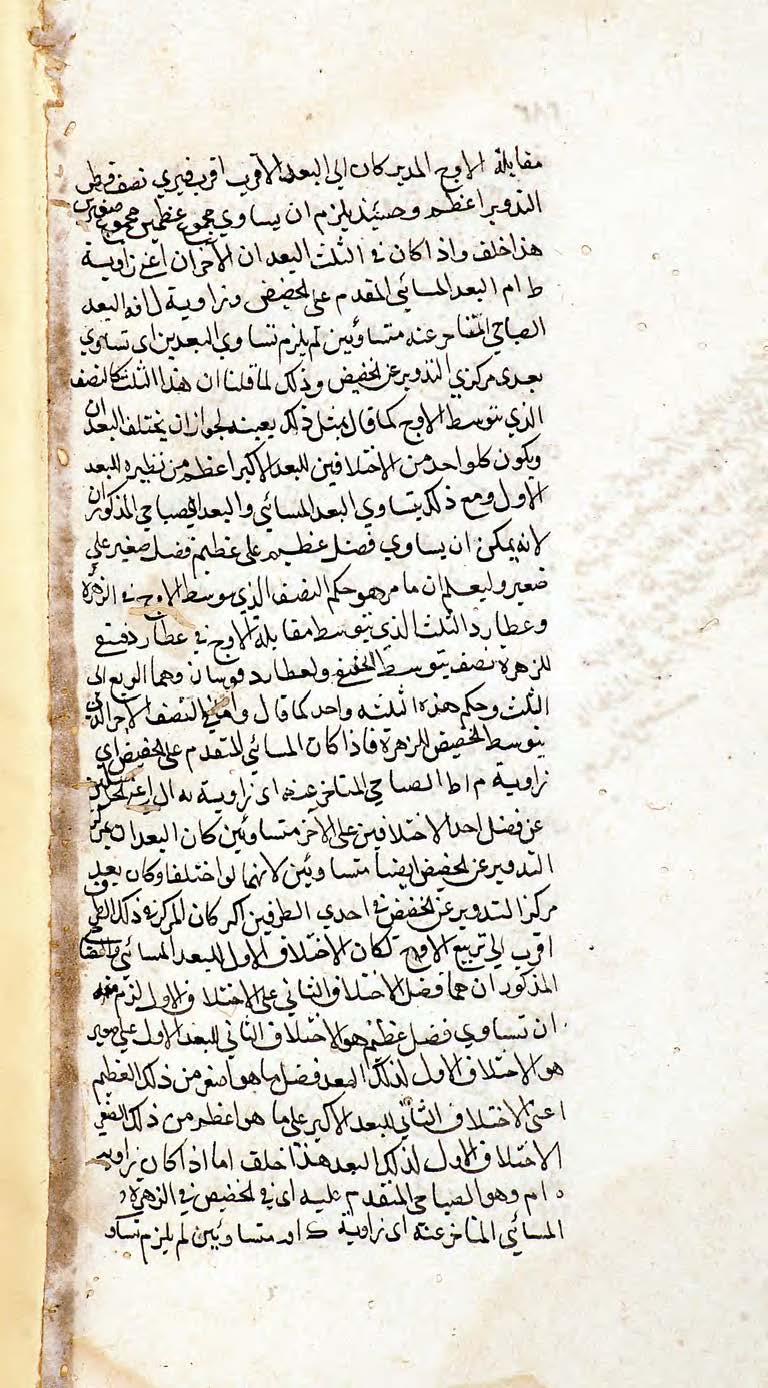 مقابلة الاوج المدير كان الى البعد الاقرب اقرب فيرى نصف قطر
التدوير اعظم وحينئذ يلزم ان يساوي مجموع عظمين مجموع صغيرين
هذا خلف واذا كان في الثلث البعدان الآخران اعني زاوية
ط ام البعد المسائي المقدم على الحضيض وزاوية ل اف البعد
الصباحي المتاخر عنه متساويين لم يلزم تساوي البعدين اي تساوي
بعدى مركزي التدوير عن الحضيض وذلك لما قلنا ان هذا الثلث كالنصف
الذي يتوسط الاوج كما قال بمثل ذلك بعينه لجواز ان يختلف البعدان
ويكون كل واحد من الاختلافين للبعد الاكبر اعظم من نظيره للبعد
الاول ومع ذلك يتساوي البعد المسائي والبعد الصباحي المذكوران
لانه يمكن ان يساوي فضل عظيم على عظيم فضل صغير على
صغير وليعلم ان ما مر هو حكم النصف الذي يتوسط الاوج في الزهرة
وعطارد الثلث الذي يتوسط مقابلة الاوج في عطارد فبقي
للزهرة نصف يتوسط الحضيض ولعطارد قوسان وهما الربع الى
الثلث وحكم هذه الثلثه واحد كما قال واما في النصف الآخر الذي
يتوسط الحضيض للزهرة فاذا كان المسائي المتقدم على الحضيض اي
زاوية م اط الصباحي المتاخر عنه اى زاوية ه ال
عن فضل احد الاختلافين على الآخر متساويين كان البعدان
التدوير عن الحضيض ايضا متساويين لانهما لو اختلفا وكان بعد
مركز التدوير عن الحضيض في احدي الطرفين اكبر كان المركز في ذلك الطرف
اقرب الى تربيع الاوج لكان الاختلاف الاول للبعد المسائي والصباحي
المذكوران هما فضل الاختلاف الثاني على الاختلاف الاول لزم منه
ان تساوي فضل عظيم هو الاختلاف الثاني للبعد الاول على صغير
هو الاختلاف الاول لذلك البعد فضل ما هو اصغر من ذلك العظيم
اعنى الاختلاف الثاني للبعد الاكبر على ما هو اعظم من ذلك الصغير
الاختلاف الاول لذلك البعد هذا خلف اما اذا كان زاوية
ه ام وهو الصباحي المتقدم عليه اى في الحضيض في الزهرة و
المسائي المتاخر عنه اى زاوية ك ا متساويين لم يلزم تساو